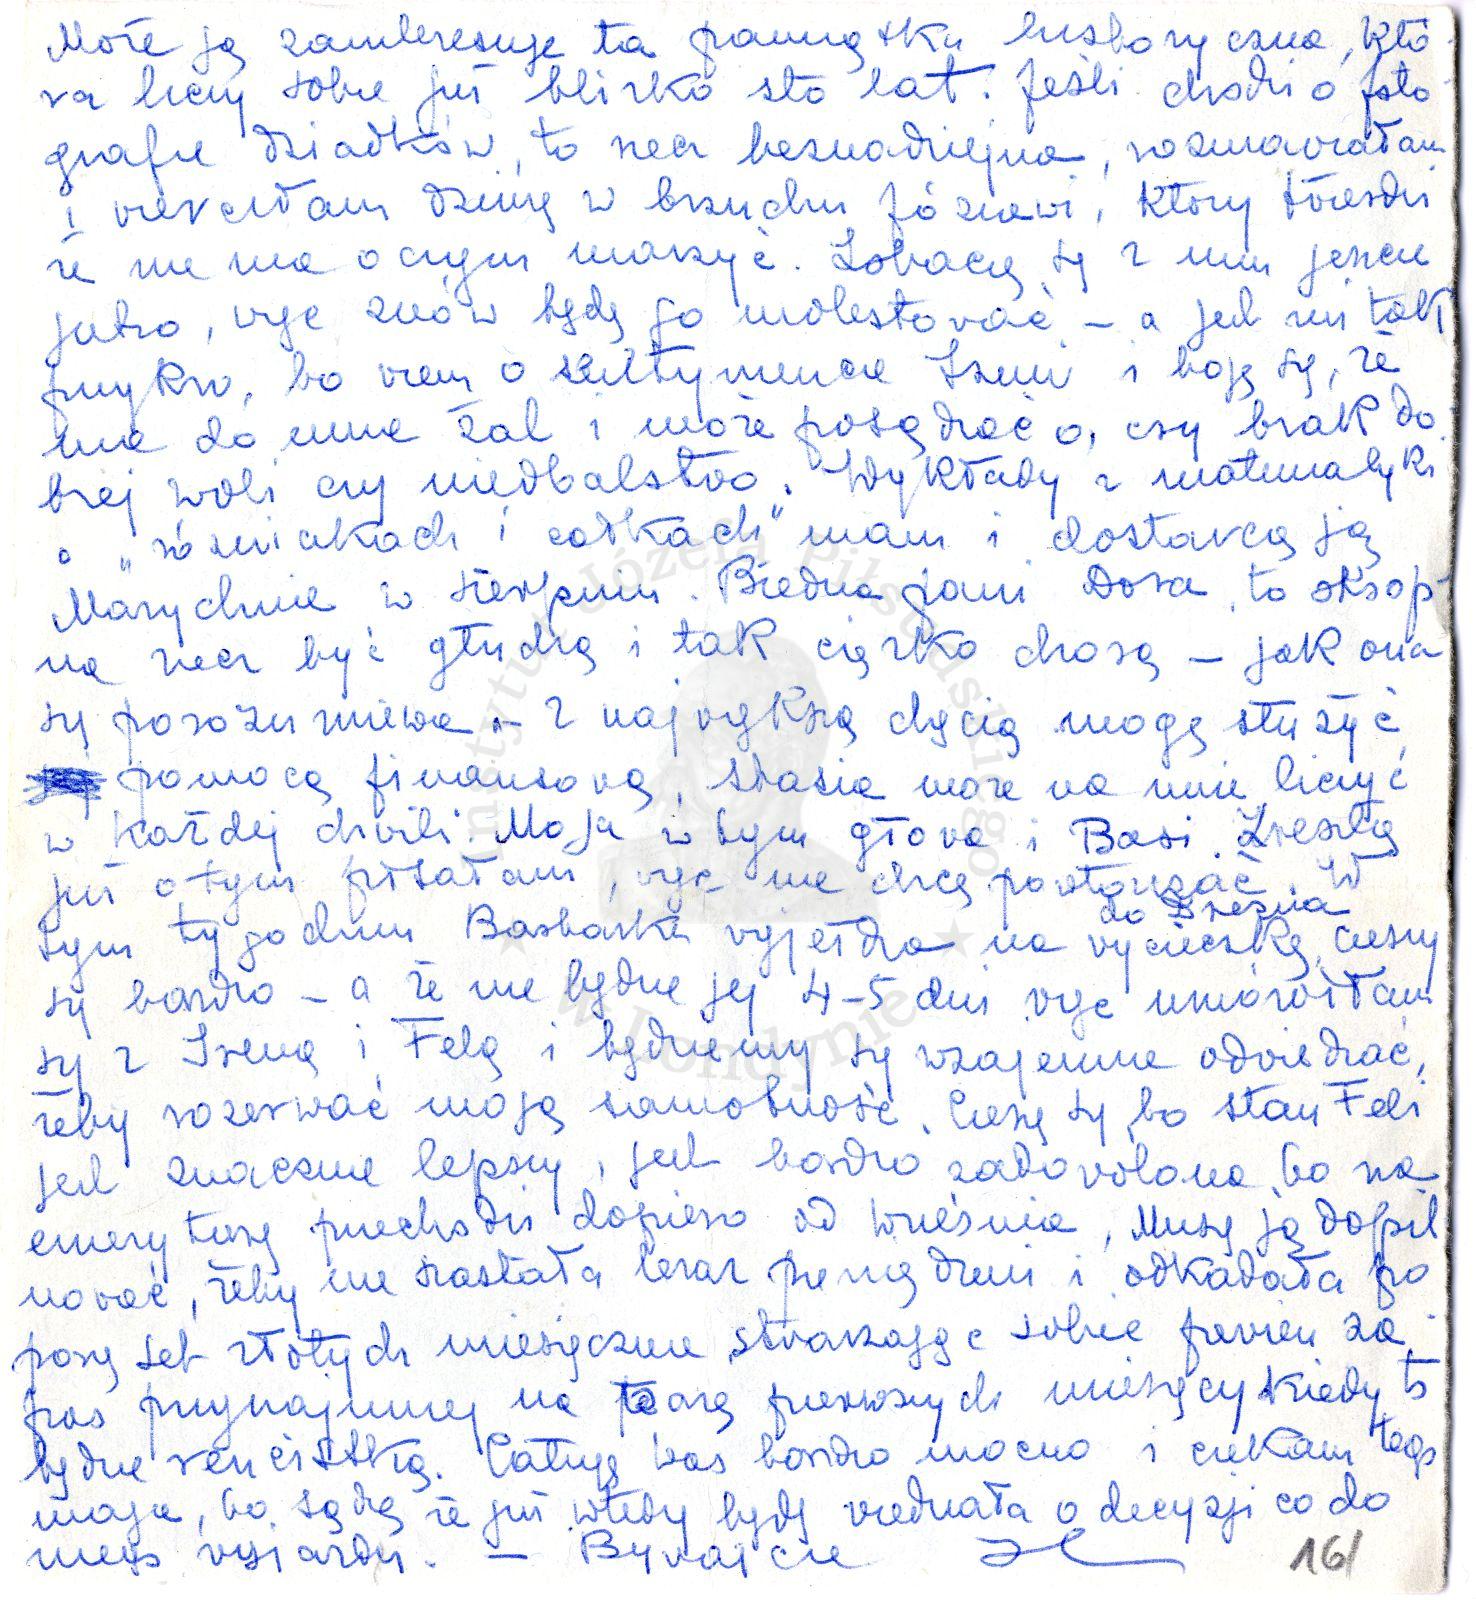 Może ją zainteresuje ta pamiątka historyczna, któ-
ra liczy sobie już blizko sto lat. Jeśli chodzi o foto-
grafie dziadków, to rzecz beznadziejna, rozmawiałam
i wierciłam dziurę w brzuchu Józiowi, który twierdzi
że nie ma o czym marzyć. Zobaczę się z nim jeszcze
jutro, więc znów będę go molestować – a jest mi tak
przykro, bo wiem o sentymencie Izuni i boję się, że
ma do mnie żal i może posądzać o, czy brak do
brej woli czy niedbalstwo. Wykłady z matematyki
o "różniczkach i całkach" mam i dostarczę ją
Marychnie w sierpniu. Biedna pani Dora, to okrop-
na rzecz być głuchą i tak ciężko chorą – jak ona
się porozumiewa – Z największą chęcią mogę służyć
pomocą finansową, Stasia może na mnie liczyć
w każdej chwili. Moja w tym głowa i Basi. Zresztą
już o tym pisałam, więc nie chcę powtarzać. W
do Drezna
tym tygodniu Basbaska wyjeżdża na wycieczkę, cieszy
się bardzo – a że nie będzie jej 4–5 dni więc umówiłam
się z Ireną i Felą i będziemy się wzajemnie odwiedzać,
żeby rozerwać moją samotność. Cieszę się, bo stan Feli
jest znacznie lepszy, jest bardzo zadowolona, bo na
emeryturę przechodzi dopiero od września, Muszę ją dopil
nować, żeby nie szastała teraz pieniędzmi i odkładała po
parę set złotych miesięcznie, stwarzając sobie pewien za-
pas przynajmniej na parę pierwszych miesięcy kiedy to
będzie rencistką. Całuję was bardzo mocno i czekam tego
maja, bo sądzę że już wtedy będę wiedziała o decyzji co do
mego wyjazdu. – Bywajcie
16/
Instytut Józefa Piłsudskiego
★ w Londynie ★